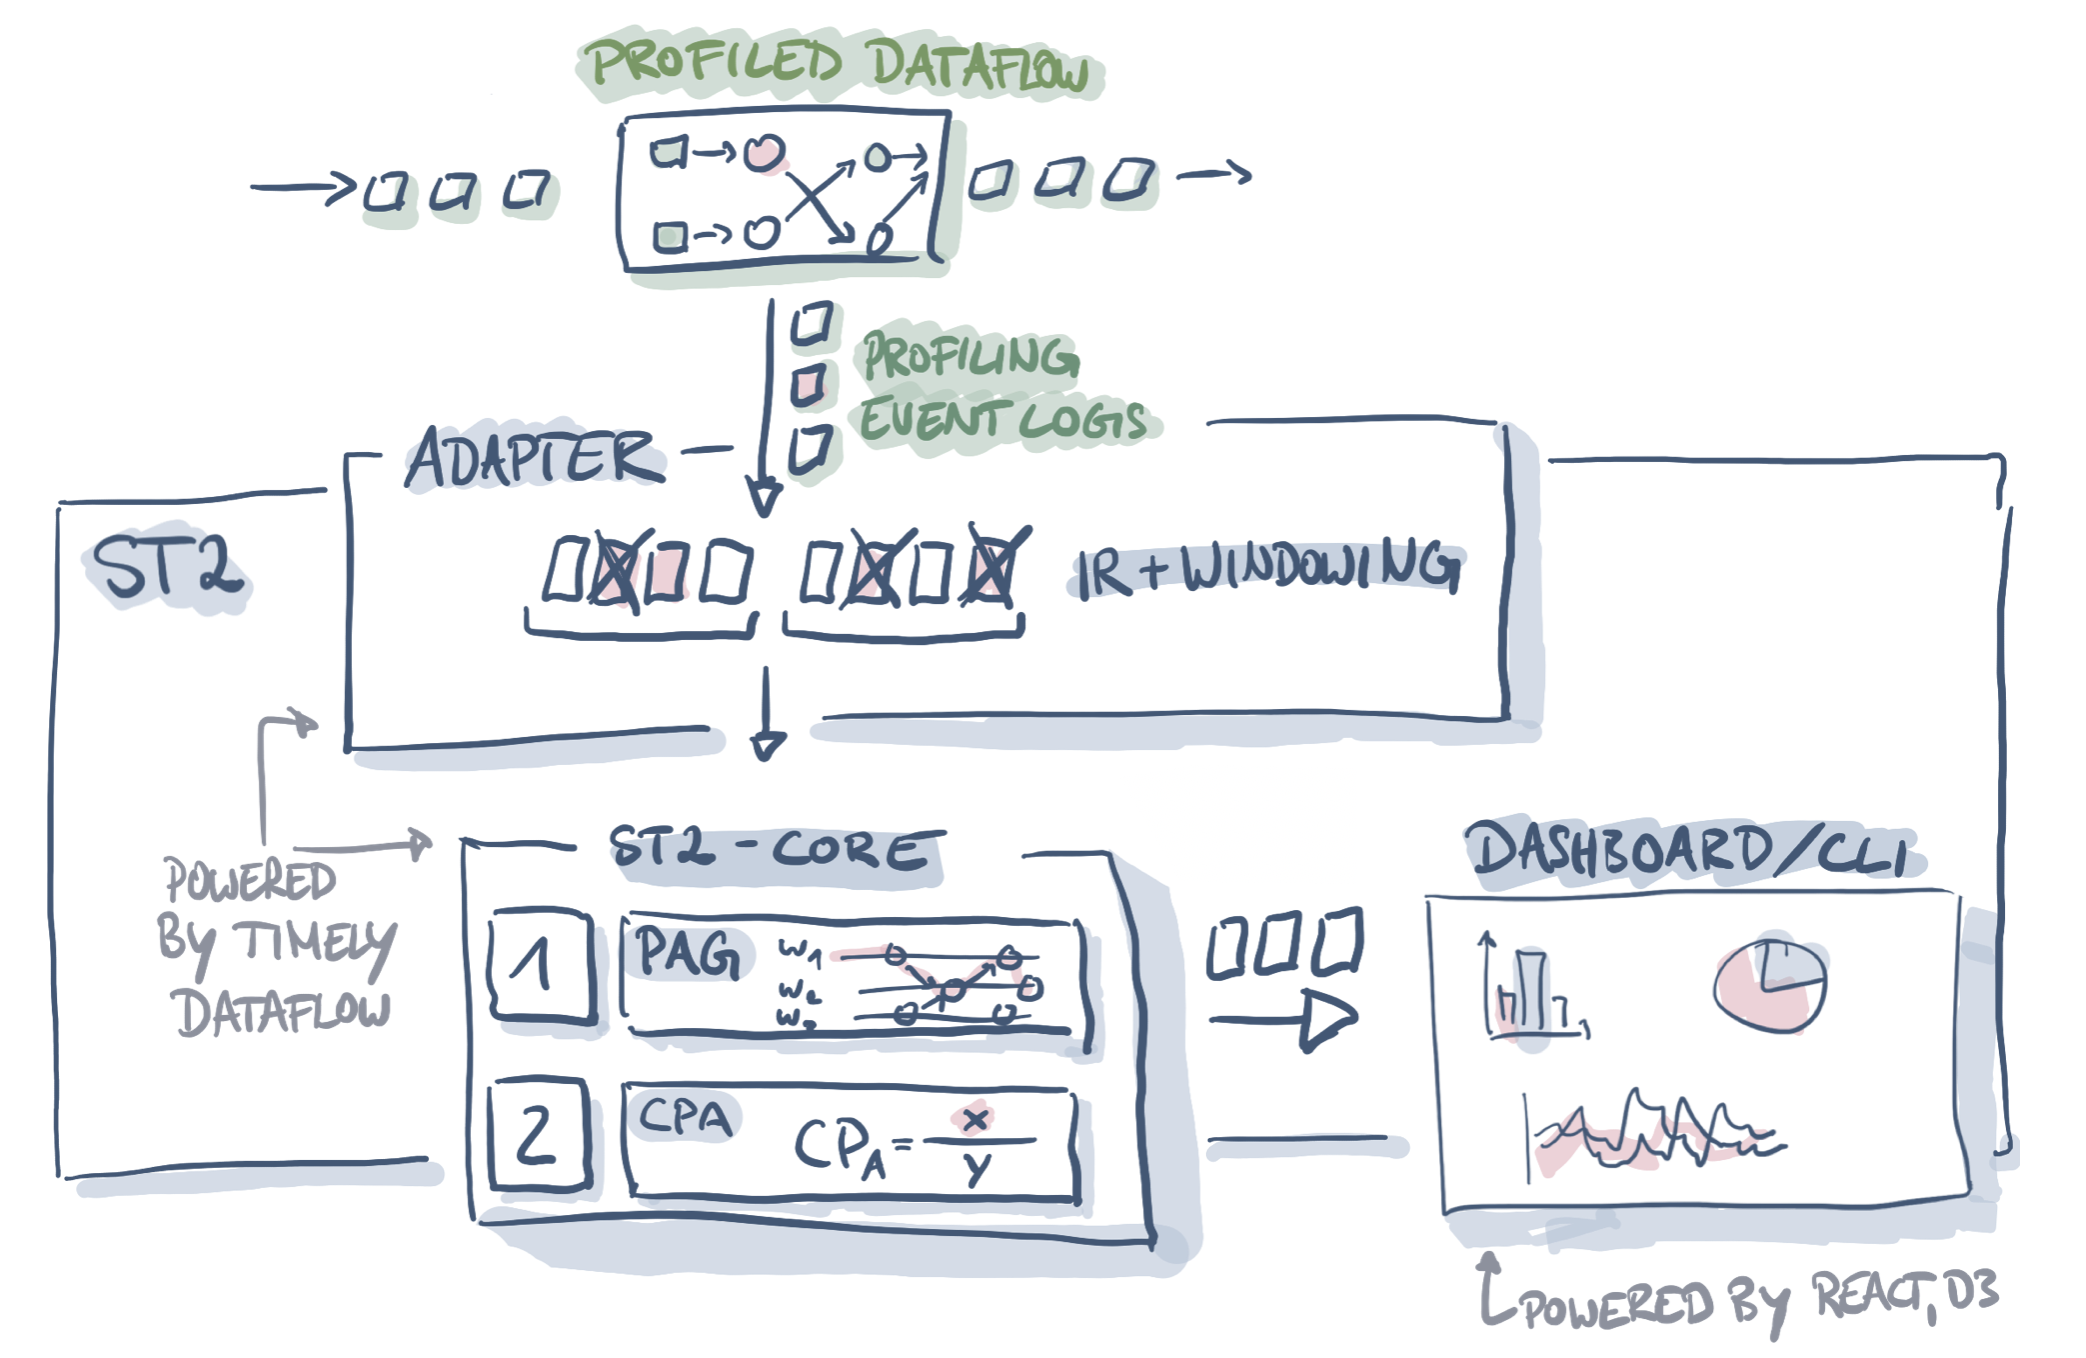 PROFILED DATAFLOW
PROFILING
EVENT LOGS
ADAPTER
ST2
IR + WINDOWING
POWERED
BY TIMELY
DATAFLOW
ST2 - CORE
1
PAG
W1
W2
W3
2
CPA
CPA = x
y
DASHBOARD/CLI
POWERED BY REACT, D3